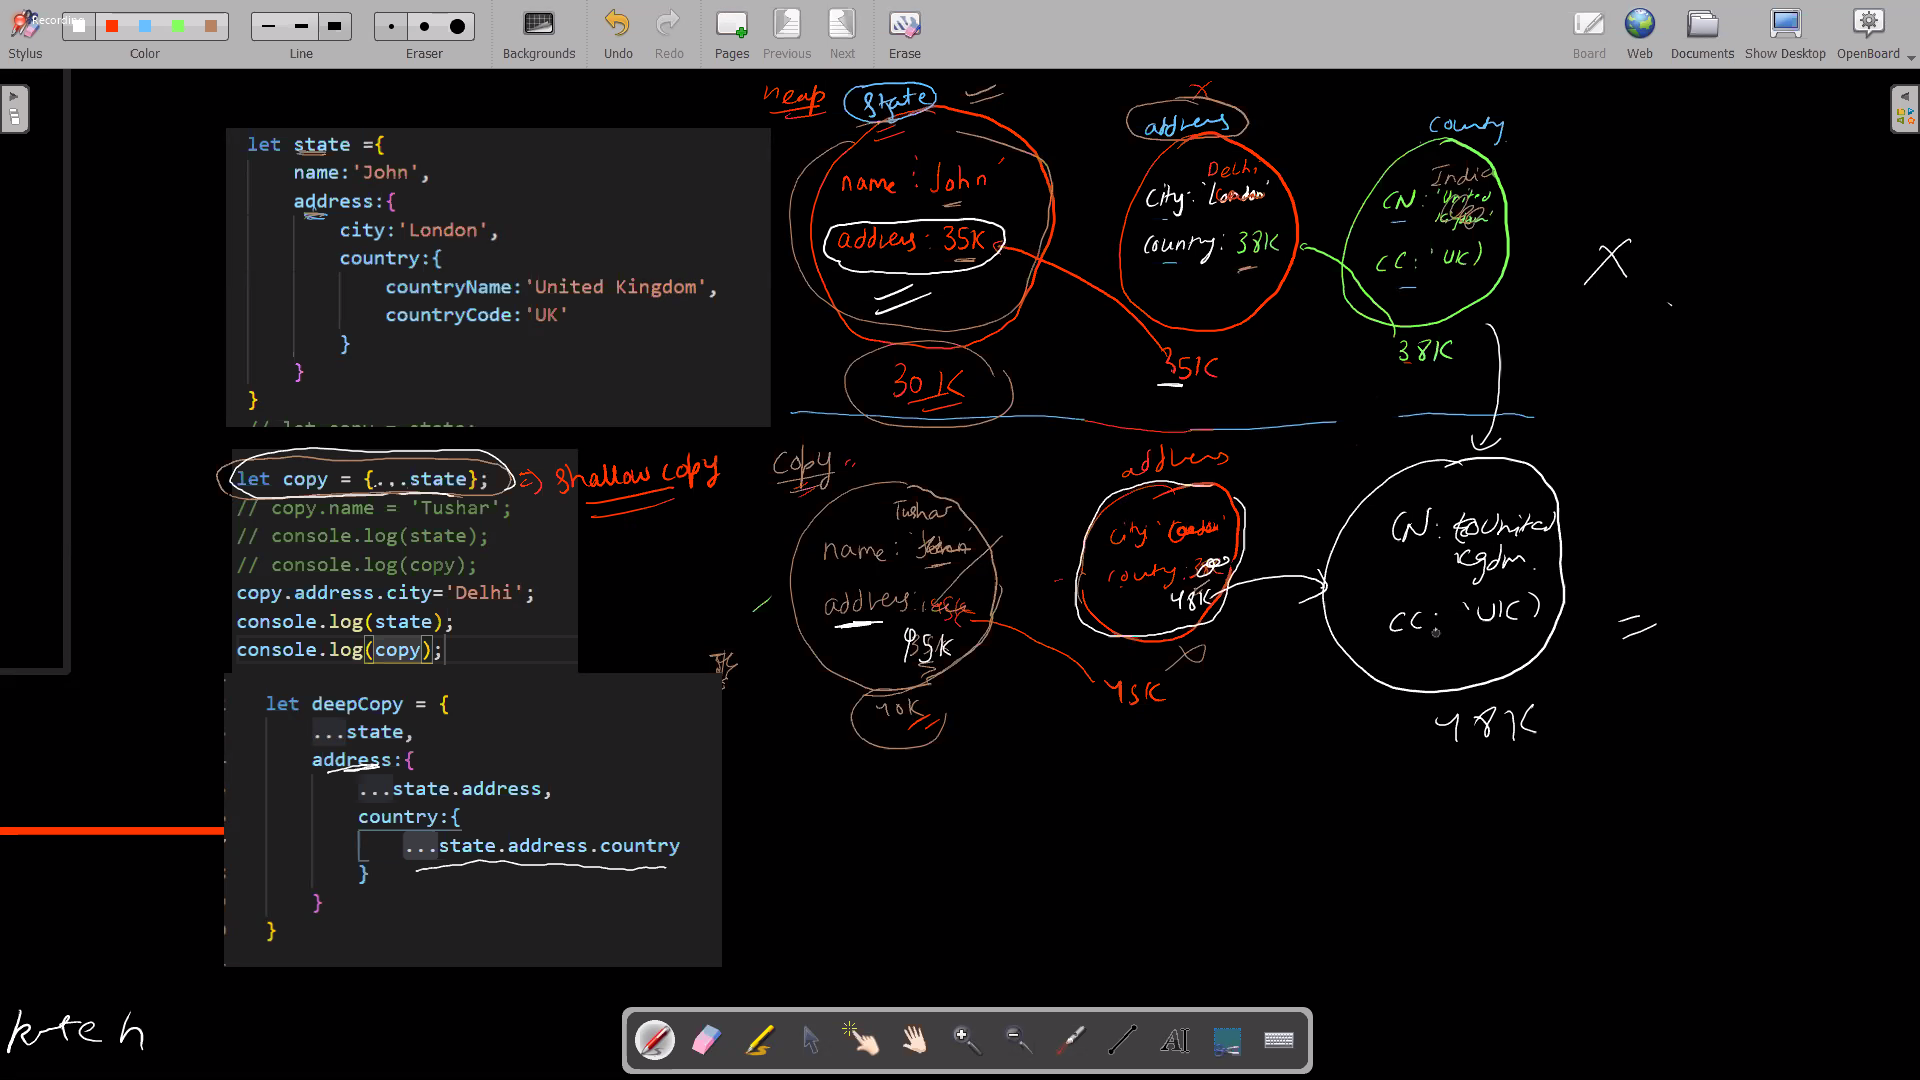 Recording
Stylus
Color
Line
Eraser
Backgrounds
Undo
Redo
Pages
Previous
Next
Erase
Board
Web
Documents
Show Desktop
OpenBoard
let state ={
name:'John',
address:{
city:'London',
country:{
countryName:'United Kingdom',
countryCode:'UK'
}
}
}
// let copy = state;
let copy = {...state};
=> Shallow copy
// copy.name = 'Tushar';
// console.log(state);
// console.log(copy);
copy.address.city='Delhi';
console.log(state);
console.log(copy);
let deepCopy = {
...state,
address:{
...state.address,
country:{
...state.address.country
}
}
}
heap
state
name: 'John'
address: 35K
30K
address
Delhi
city: 'London'
country: 38K
35K
County
India
CN: 'United
CC: 'UK'
38K
copy
Tushar
name: 'John'
address:
35K
40K
address
city 'London'
county:
48K
45K
CN: United
kgdm.
CC: 'UK'
48K